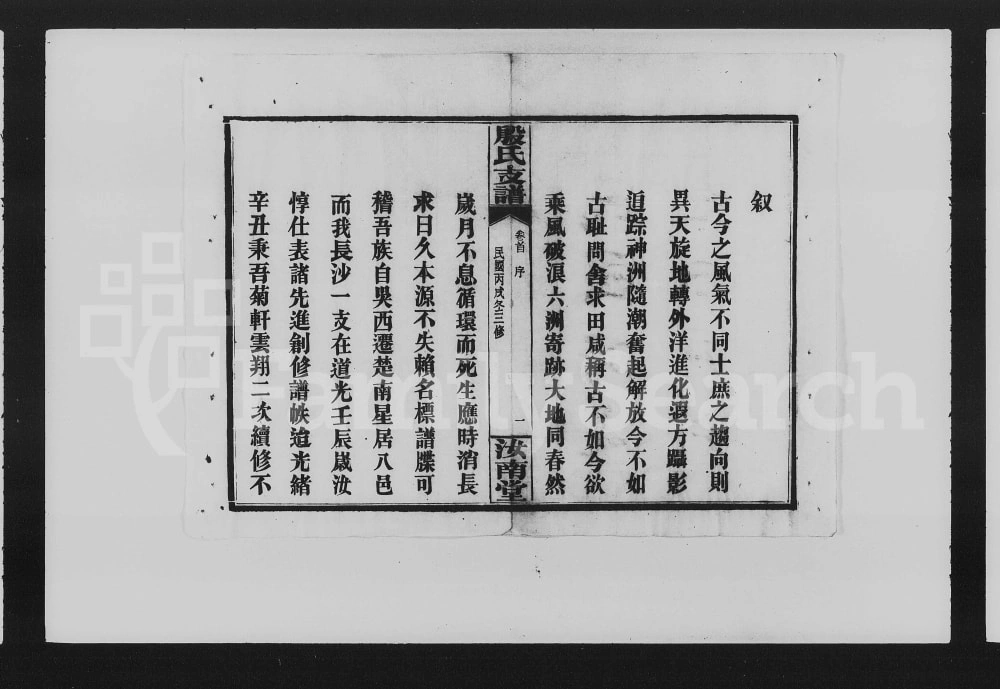 叙
古今之風氣不同士庶之趨向則
異天旋地轉外洋進化遐方躡影
追踪神洲隨潮奮起解放今不如
古耻問禽求田咸稱古不如今欲
乘風破浪六洲寄跡大地同春然
殷氏支譜
卷首 序
民國丙戌冬三修
一
汝南堂
歲月不息循環而死生應時消長
求日久本源不失賴名標譜牒可
稽吾族自吳西遷楚南星居八邑
而我長沙一支在道光壬辰歲汝
惇仕表諸先進創修譜帙迨光緒
辛丑秉吾菊軒雲翔二次續修不
FamilySearch